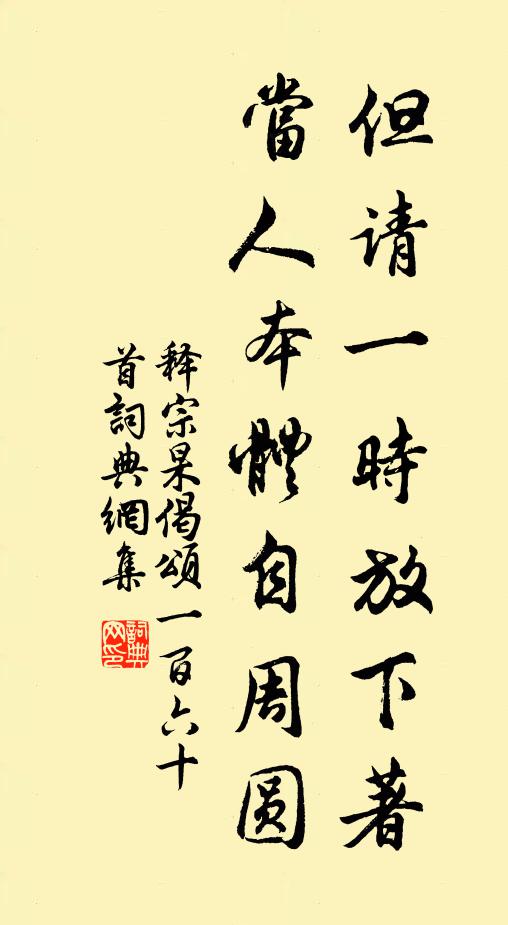 但请一時放下著
當人本體自周圆
释宗杲偈頌一百六十
首詞典網集
詞典网印